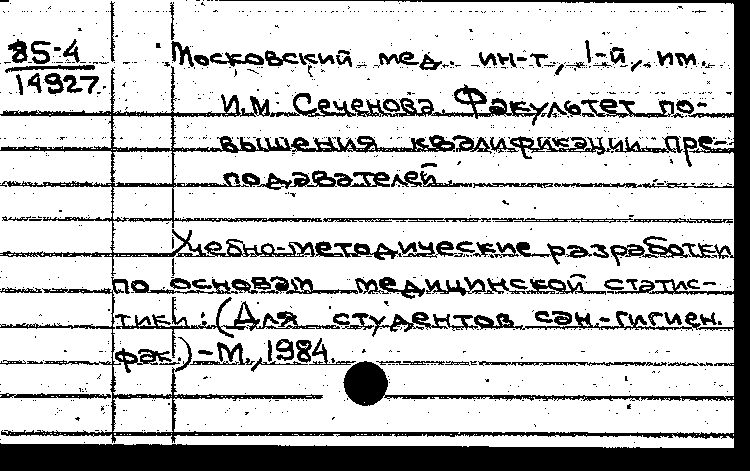 85-4
14927
Московский мед. ин-т, 1-й, им.
И.М. Сеченова. Факультет по-
вышения квалификации пре-
подавателей.
Учебно-методические разработки
по основам медицинской статис-
тики: (Для студентов сан.-гигиен.
фак.) - М., 1984.